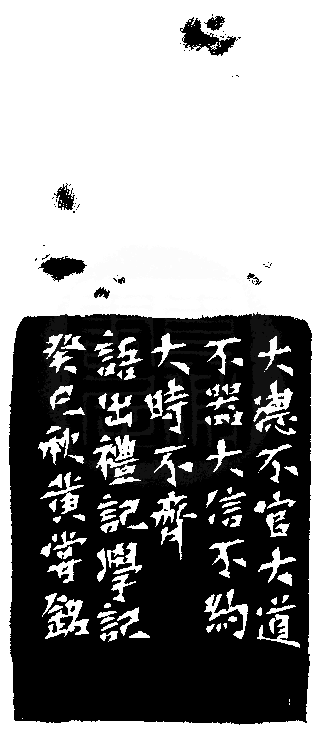 大德不官大道
不器大信不約
大時不齊
語出禮記學記
癸巳秋黃嘗銘